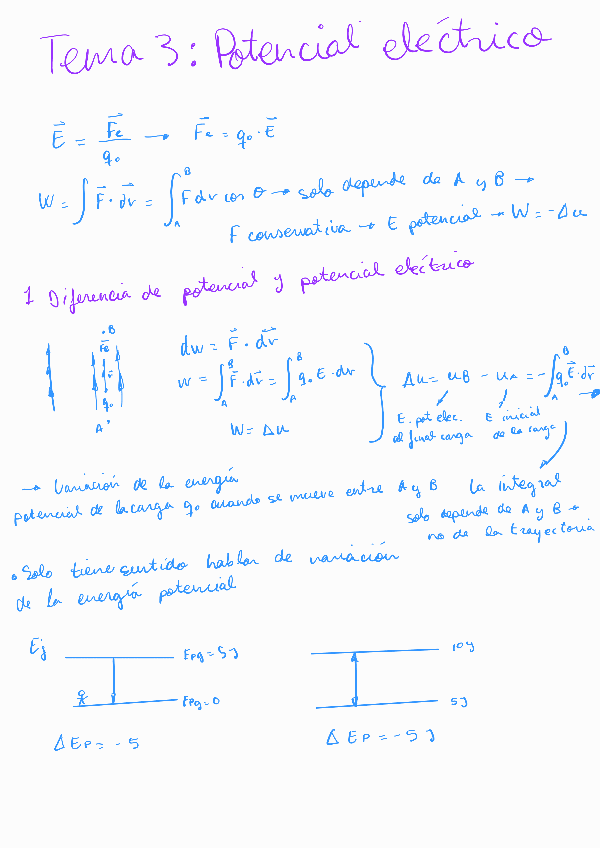 Tema 3: Potencial eléctrico
E⃗ = F⃗e / q₀ → F⃗e = q₀ · E⃗
W = ∫ F⃗ · dr⃗ = ∫_A^B F dr cos θ → solo depende de A y B →
F conservativa → E potencial → W = -Δu
1 Diferencia de potencial y potencial eléctrico
· B
F⃗e
r⃗
q₀
A ·
dw = F⃗ · dr⃗
w = ∫_A^B F⃗ · dr⃗ = ∫_A^B q₀ E · dr
W = Δu
Δu = uB - uA = -∫_A^B q₀ E⃗ · dr⃗ →
E. pot elec. al final carga
E inicial de la carga
→ Variación de la energía
potencial de la carga q₀ cuando se mueve entre A y B
La integral
solo depende de A y B →
no de la trayectoria
• Solo tiene sentido hablar de variación
de la energía potencial
Ej
Epg = 5 J
Epg = 0
Δ Ep = - 5
10 J
5 J
Δ Ep = - 5 J